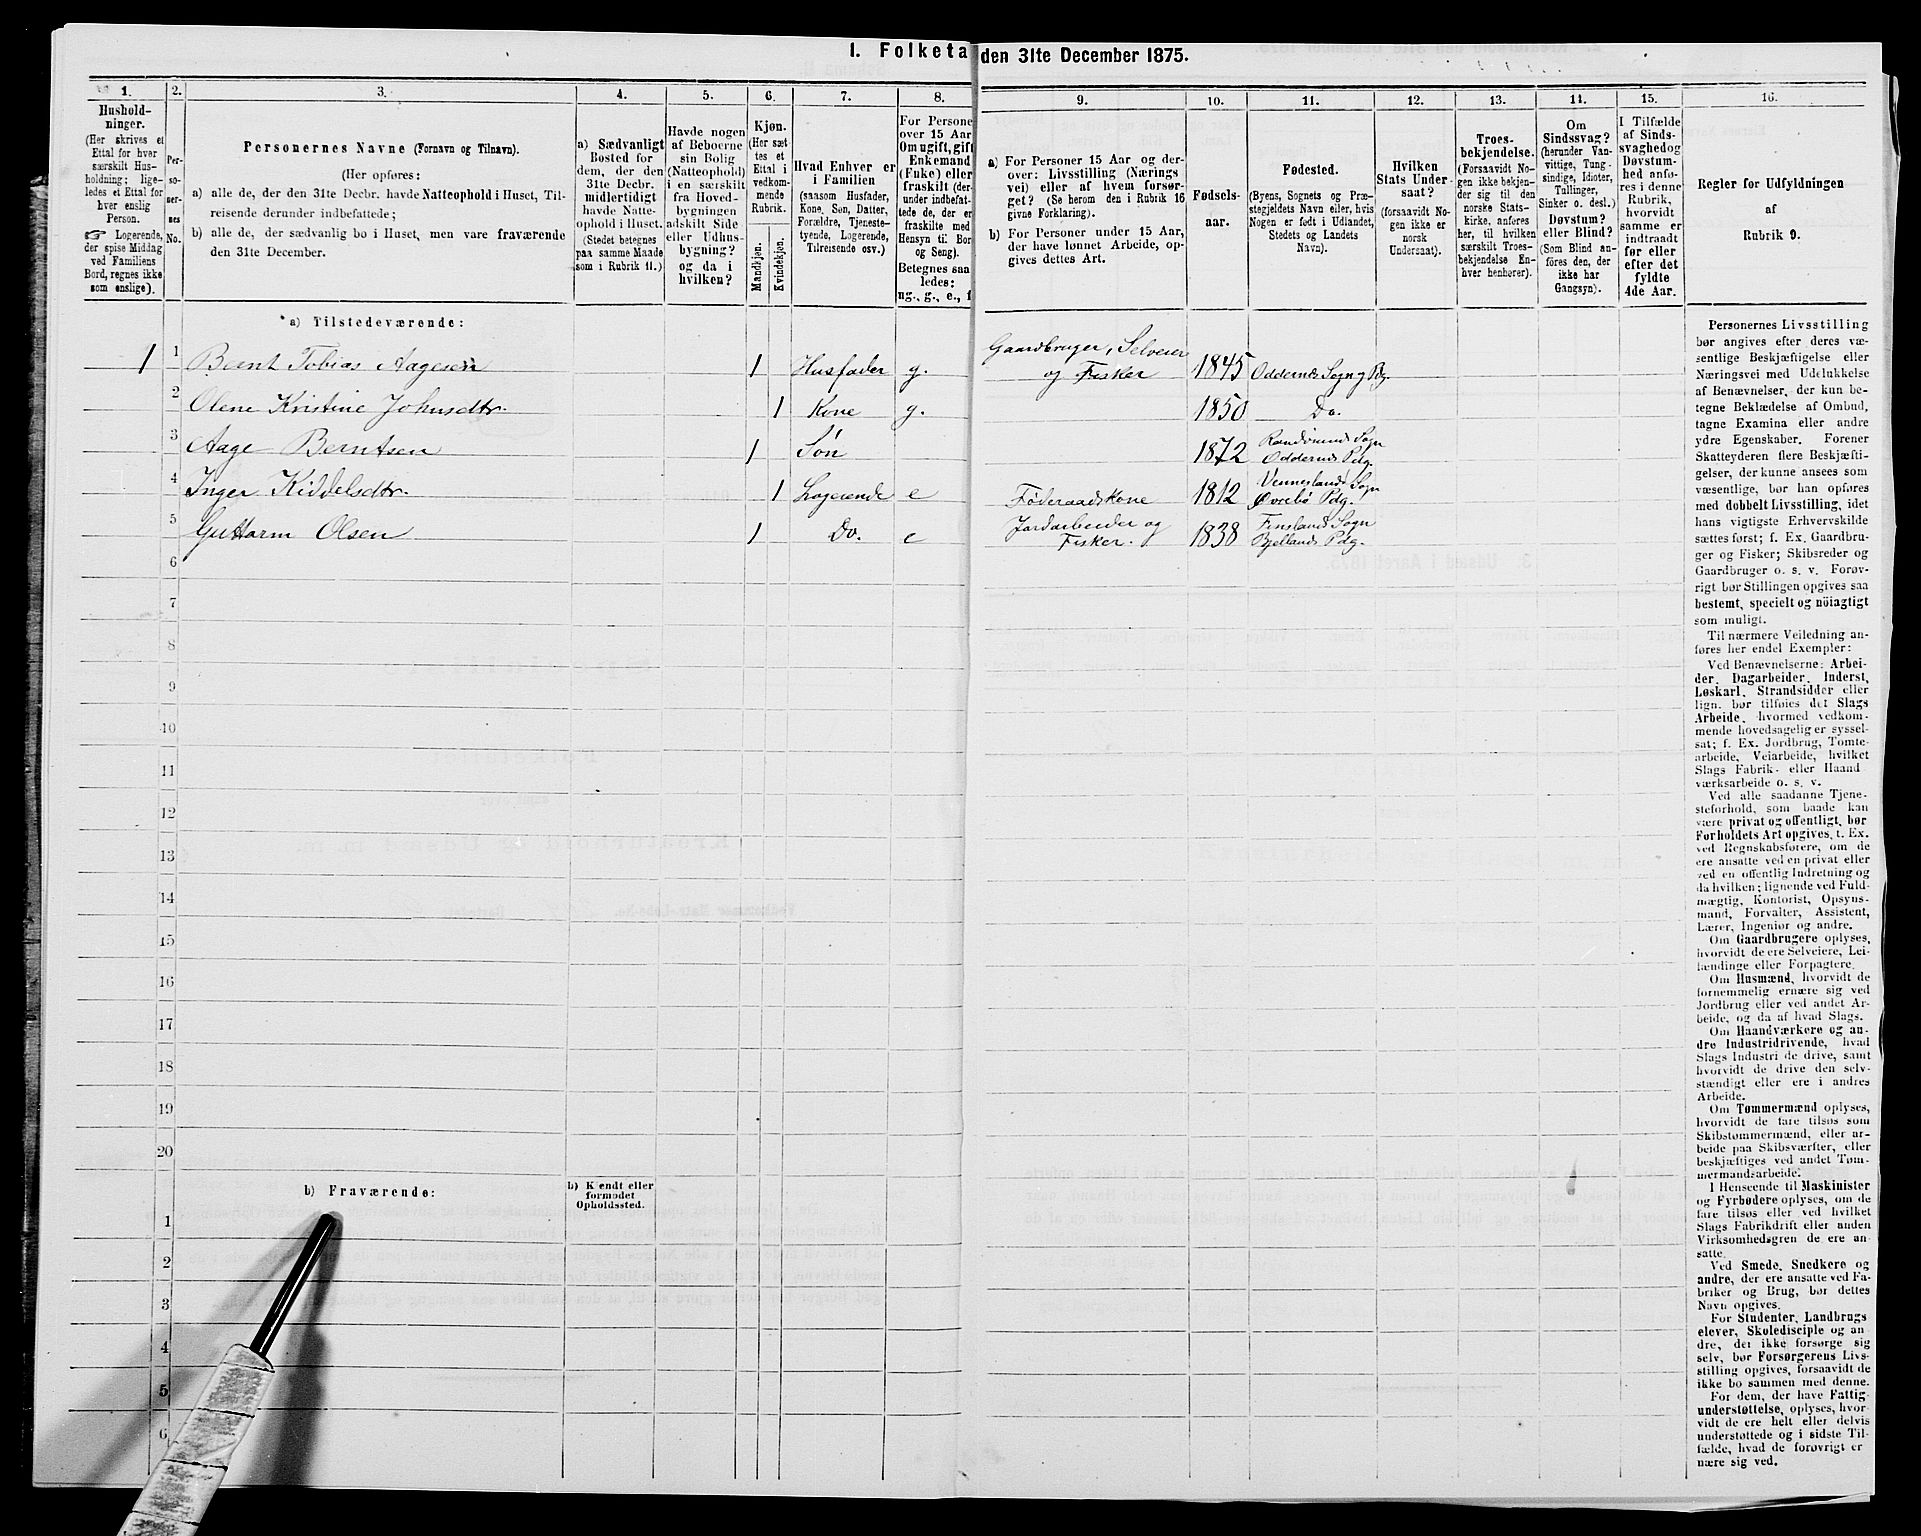 1. Folketa
den 31te December 1875.
1.
2.
3.
4.
5.
6.
7.
8.
9.
10.
11.
12.
13.
14.
15.
16.
Hushold-
ninger.
(Her skrives et
Ettal for hver
særskilt Hus-
holdning; lige-
ledes et Ettal for
hver enslig
Person.
☞ Logerende,
der spise Middag
ved Familiens
Bord, regnes ikke
som enslige).
Per-
so-
ner-
nes
No.
Personernes Navne (Fornavn og Tilnavn).
(Her opføres:
a) alle de, der den 31te Decbr. havde Natteophold i Huset, Til-
reisende derunder indbefattede;
b) alle de, der sædvanlig bo i Huset, men vare fraværende
den 31te December.
a) Sædvanligt
Bosted for
dem, der den
31te Decbr.
midlertidigt
havde Natte-
ophold i Huset.
(Stedet betegnes
paa samme Maade
som i Rubrik 11.)
Havde nogen
af Beboerne
sin Bolig
(Natteophold)
i en særskilt
fra Hoved-
bygningen
adskilt Side
eller Udhus-
bygning?
og da i
hvilken?
Kjøn.
(Her sæt
tes et
Ettal i
vedkom-
mende
Rubrik.
Mandkjøn.
Kvindekjøn.
Hvad Enhver er
i Familien
(saasom Husfader,
Kone, Søn, Datter,
Forældre, Tjeneste-
tyende, Logerende,
Tilreisende osv.)
For Persone
over 15 Aar
Om ugift, gift
Enkemand
(Enke) eller
fraskilt (der-
under indbefat-
tede de, der er
fraskilte med
Hensyn til Bor
og Seng).
Betegnes saa
ledes:
ug., g., e., f
a) For Personer 15 Aar og der-
over: Livsstilling (Nærings
vei) eller af hvem forsør-
get? (Se herom den i Rubrik 16
givne Forklaring).
b) For Personer under 15 Aar,
der have lønnet Arbeide, op-
gives dettes Art.
Fødsels-
aar.
Fødested.
(Byens, Sognets og Præ-
stegjeldets Navn eller, hvis
Nogen er født i Udlandet,
Stedets og Landets
Navn).
Hvilken
Stats Under-
saat?
(forsaavidt No-
gen ikke er
norsk
Undersaat).
Troes-
bekjendelse.
(Forsaavidt No-
gen ikke bekjen-
der sig til den
norske Stats-
kirke, anføres
her, til hvilken
særskilt Troes-
bekjendelse En-
hver henhører).
Om
Sindssvag?
(herunder Van-
vittige, Tung-
sindige, Idioter,
Tullinger,
Sinker o. desl.)
Døvstum?
eller Blind?
(Som Blind an-
føres den, der
ikke har
Gangsyn).
I Tilfælde
af Sinds-
svaghed og
Døvstum-
hed anfø-
res i denne
Rubrik,
hvorvidt
samme er
indtraadt
før eller
efter det
fyldte
4de Aar.
Regler for Udfyldningen
af
Rubrik 9.
a) Tilstedeværende:
1 1 Bernt Tobias Aagesen 1 Husfader g. Gaardbruger, Selveier
og Fisker 1845 Oddernds Sogn og Pdg.
2 Olene Kristine Johnsdtr. 1 Kone g. 1850 Do.
3 Aage Berntsen 1 Søn 1872 Randøsunds Sogn
Oddernds Pdg.
4 Inger Kiddelsdtr. 1 Logerende e Føderaadskone 1812 Venneslands Sogn
Øvrebø Pdg.
5 Guttorm Olsen 1 Do. e Jordarbeider og
Fisker. 1838 Finslands Sogn
Bjellands Pdg.
6
7
8
9
10
11
12
13
14
15
16
17
18
19
20
b) Fraværende:
b) Kjendt eller
formodet
Opholdssted.
1
2
3
4
5
6
Personernes Livsstilling
bør angives efter deres væ-
sentlige Beskjæftigelse eller
Næringsvei med Udelukkelse
af Benævnelser, der kun be-
tegne Beklædelse af Ombud,
tagne Examina eller andre
ydre Egenskaber. Forener
Skatteyderen flere Beskjæfti-
gelser, der kunne ansees som
væsentlige, bør han opføres
med dobbelt Livsstilling, idet
hans vigtigste Erhvervskilde
sættes først; f. Ex. Gaardbru-
ger og Fisker; Skibsreder og
Gaardbruger o. s. v. Forøv-
rigt bør Stillingen opgives saa
bestemt, specielt og nöiagtigt
som muligt.
Til nærmere Veiledning an-
føres her endel Exempler:
Ved Benævnelserne: Arbei-
der, Dagarbeider, Inderst,
Løskarl, Strandsidder eller
lign. bør tilføies det Slags
Arbeide, hvormed vedkom-
mende hovedsagelig er syssel-
sat; f. Ex. Jordbrug, Tomte-
arbeide, Veiarbeide, hvilket
Slags Fabrik- eller Haand
værksarbeide o. s. v.
Ved alle saadanne Tjene-
steforhold, som baade kan
være privat og offentligt, bør
Forholdets Art opgives, t. Ex.
ved Regnskabsførere, om de
ere ansatte ved en privat eller
ved en offentlig Indretning og
da hvilken; lignende ved Fuld-
mægtig, Kontorist, Opsyns-
mand, Forvalter, Assistent,
Lærer, Ingeniør og andre.
Om Gaardbrugere oplyses,
hvorvidt de ere Selveiere, Lei-
lændinge eller Forpagtere.
Om Husmænd, hvorvidt de
fornemmelig ernære sig ved
Jordbrug eller ved andet Ar-
beide, og da af hvad Slags.
Om Haandværkere og an-
dre Industridrivende, hvad
Slags Industri de drive, samt
hvorvidt de drive den selv-
stændigt eller ere i andres
Arbeide.
Om Tømmermænd oplyses,
hvorvidt de fare tilsøs som
Skibstømmermænd, eller ar-
beide paa Skibsværfter, eller
beskjæftiges ved andet Tøm-
mermandsarbeide.
I Henseende til Maskinister
og Fyrbødere oplyses, om de
fare tilsøs eller ved hvilket
Slags Fabrikdrift eller anden
Virksomhedsgren de ere an-
satte.
Ved Smede, Snedkere og
andre, der ere ansatte ved Fa-
briker og Brug, bør dettes
Navn opgives.
For Studenter, Landbrugs
elever, Skoledisciple og an-
dre, der ikke forsørge sig
selv, bør Forsørgerens Livs-
stilling opgives, forsaavidt de
ikke bo sammen med denne.
For dem, der have Fattig-
understøttelse, oplyses, hvor-
vidt de ere helt eller delvis
understøttede og i sidste Til-
fælde, hvad de forøvrigt er
nære sig ved.